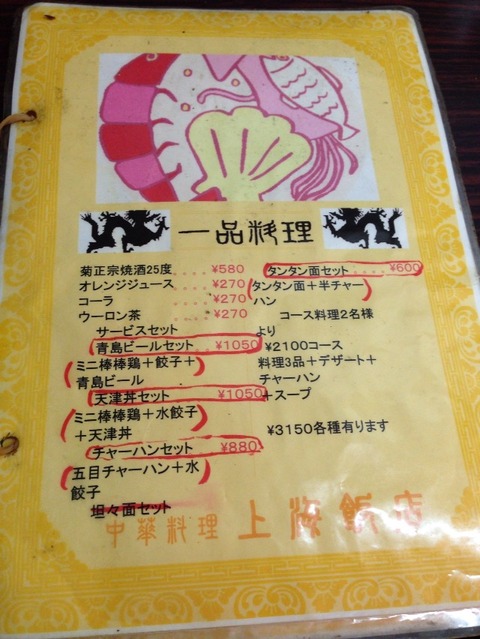 一品料理
菊正宗焼酒25度....¥580
オレンジジュース....¥270
コーラ....¥270
ウーロン茶....¥270
サービスセット
青島ビールセット...¥1050
(ミニ棒棒鶏+餃子+
青島ビール)
天津丼セット....¥1050
(ミニ棒棒鶏+水餃子
+天津丼)
チャーハンセット...¥880
(五目チャーハン+水
餃子)
坦々面セット
タンタン面セット....¥600
(タンタン面+半チャー
ハン)
コース料理2名様
より
¥2100コース
料理3品+デザート+
チャーハン
+スープ
¥3150各種有ります
中華料理 上海飯店